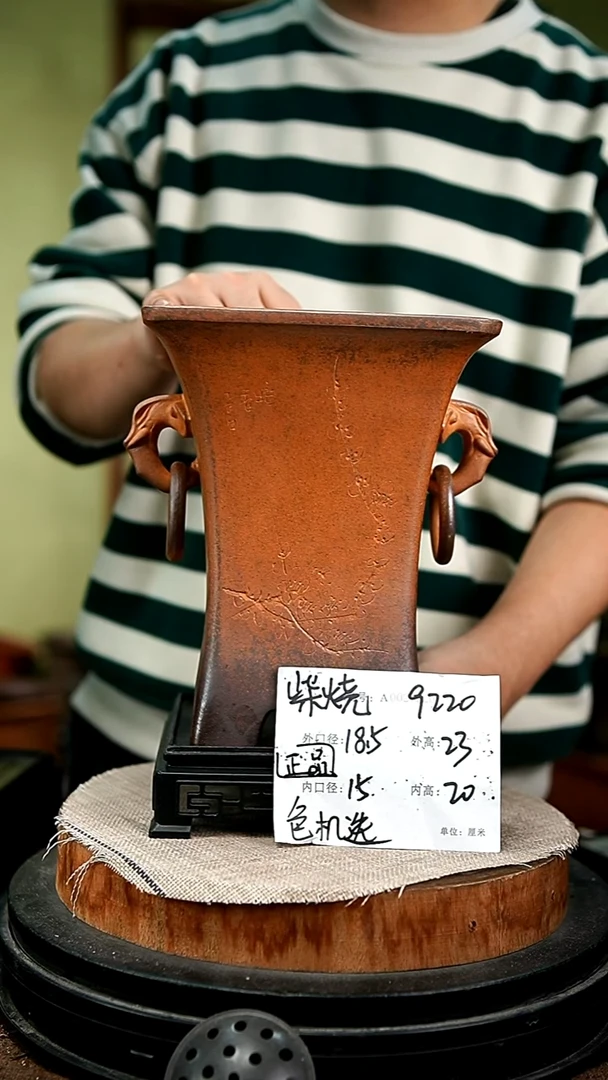 柴烧 号: A002 9220
外口径: 18.5 外高: 23
正品
内口径: 15 内高: 20
色机选 单位: 厘米